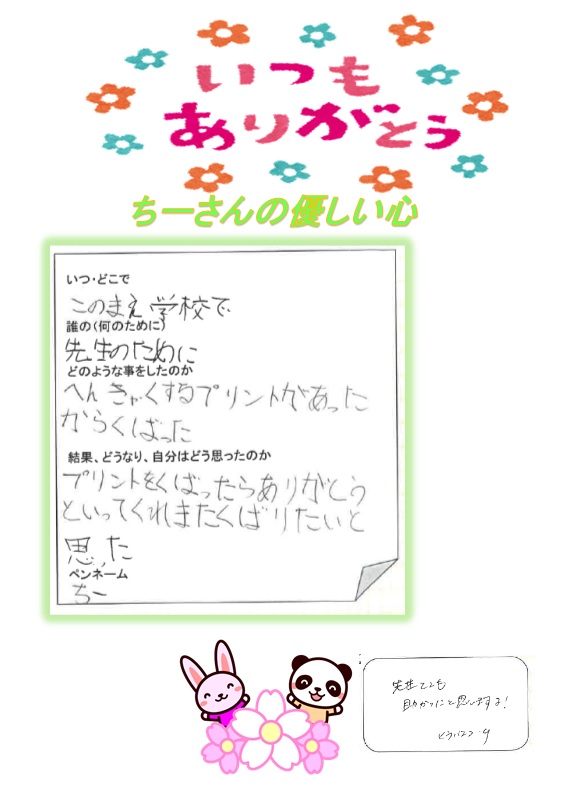 いつも
ありがとう
ちーさんの優しい心
いつ・どこで
このまえ学校で
誰の(何のために)
先生のために
どのような事をしたのか
へんきゃくするプリントがあった
からくばった
結果、どうなり、自分はどう思ったのか
プリントをくばったらありがとう
といってくれまたくばりたいと
思った
ペンネーム
ちー
先生とても
助かったと思いますよ!